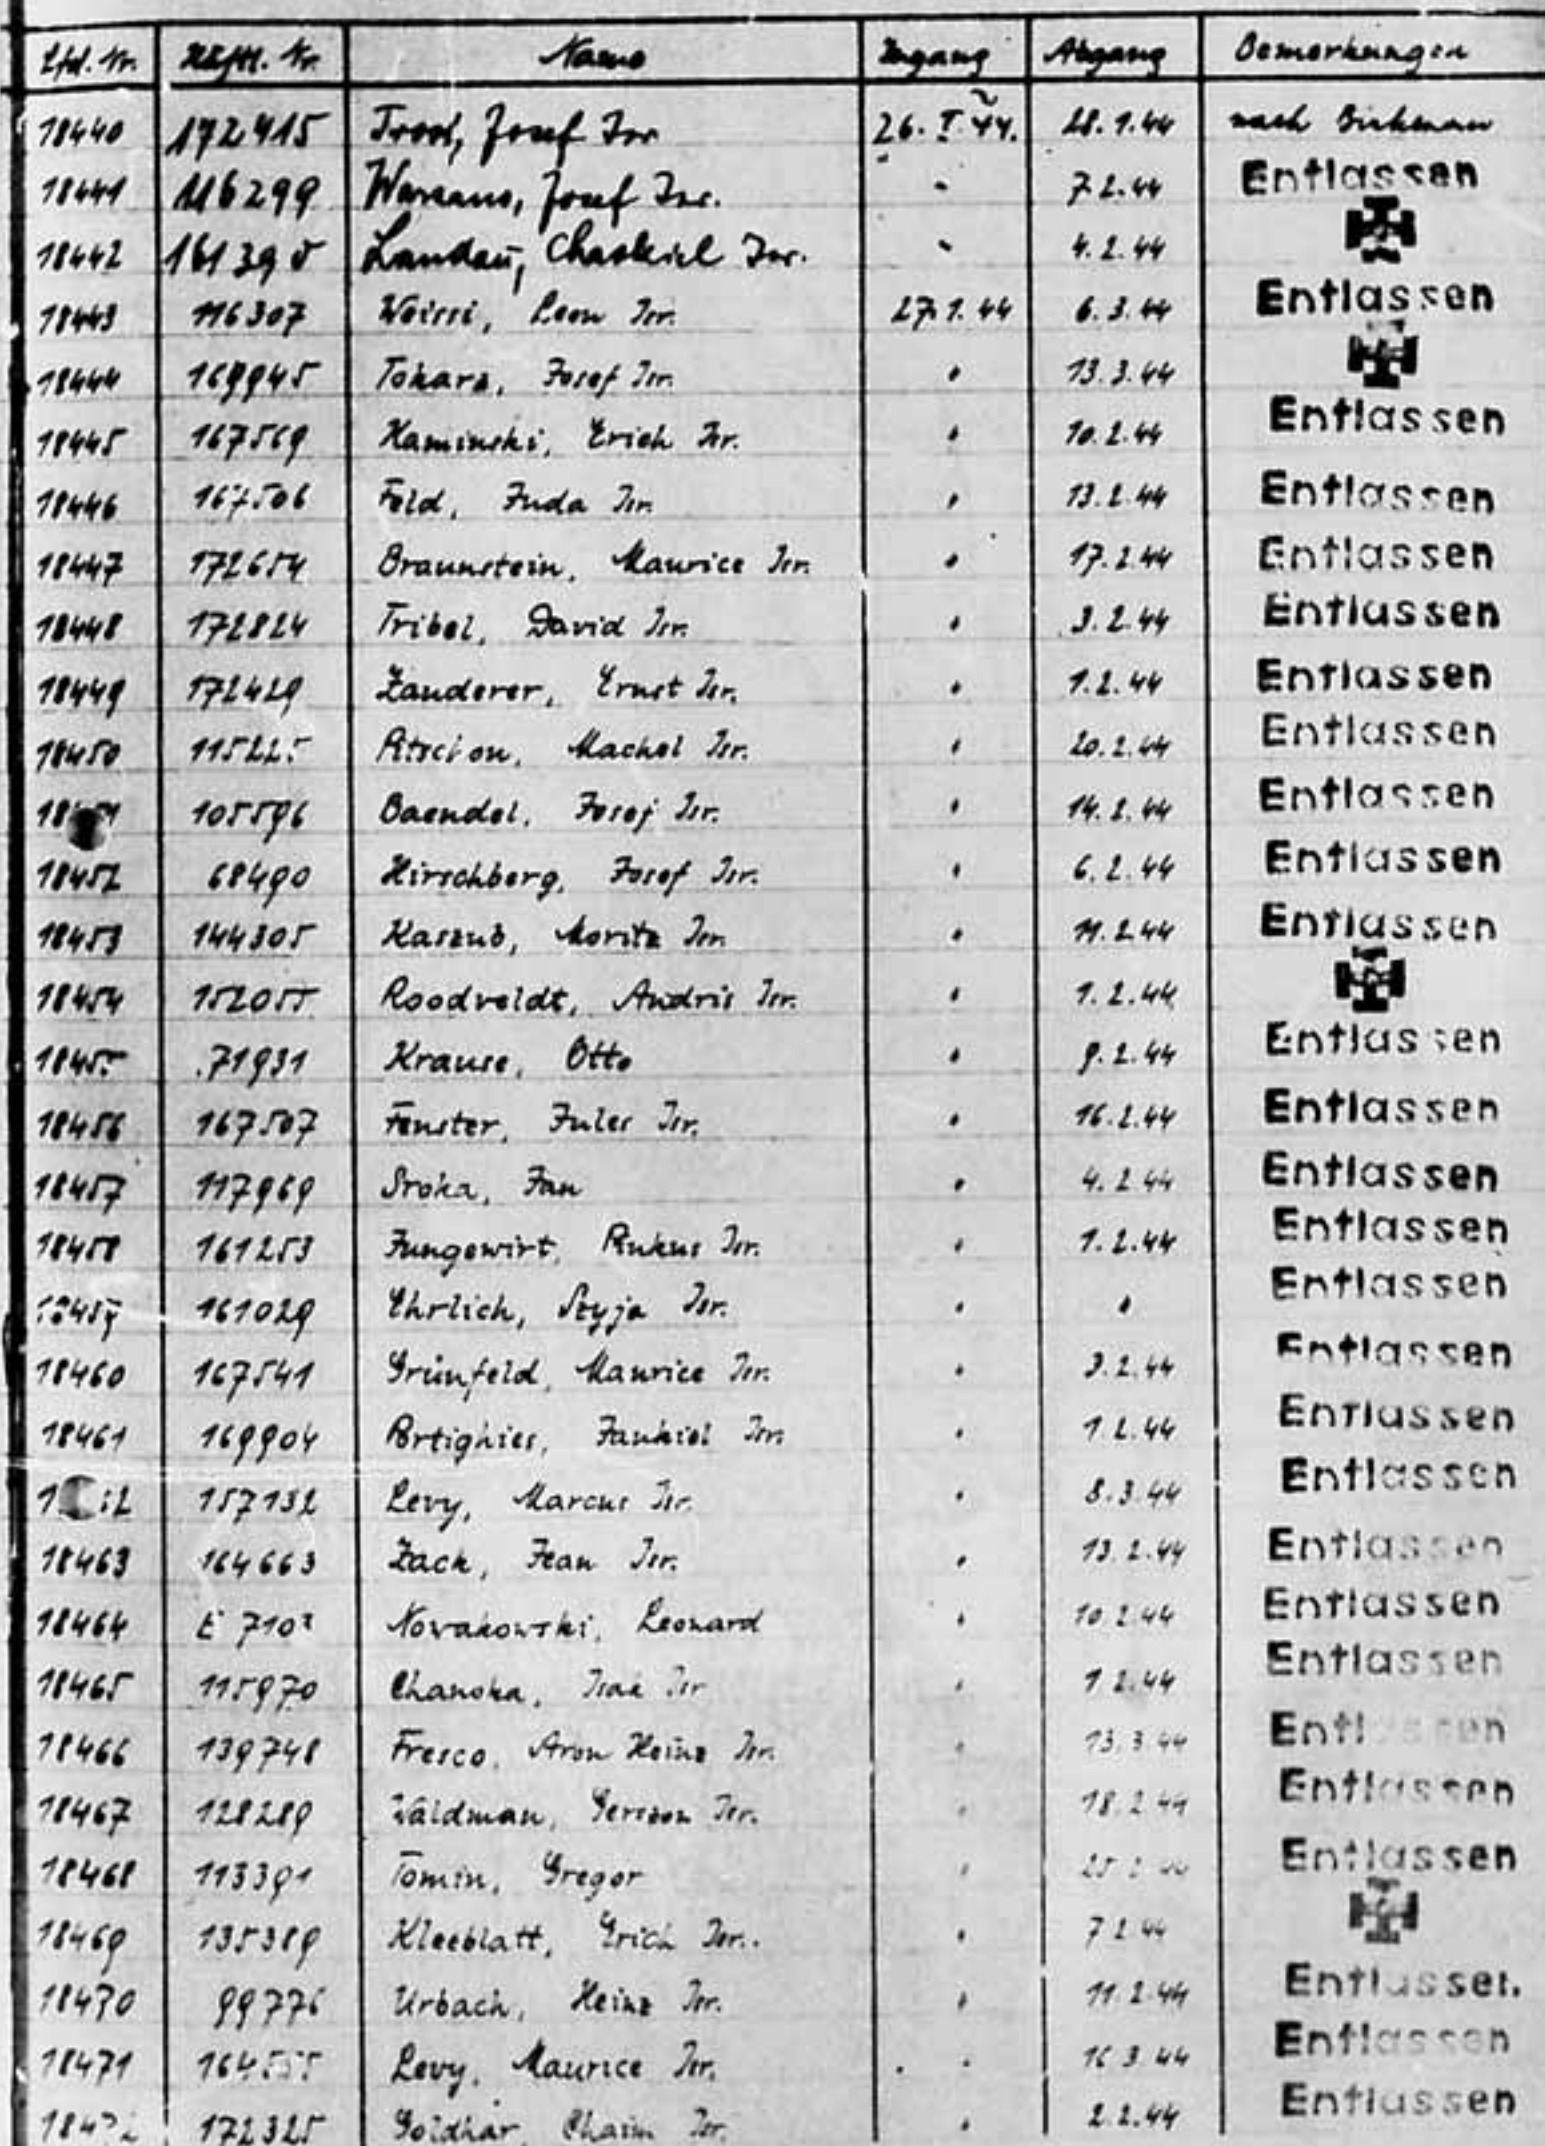 Lfd. Nr. Häftl. Nr. Name Zugang Abgang Bemerkungen
18440 172415 Josef Isr. 26. I. 44. 28.1.44 nach Birkenau
18441 116299 Josef Isr. " 7.2.44 Entlassen
18442 Landau, Chaskiel Isr. " 4.2.44
18443 116307 Leon Isr. 27.1.44 6.3.44 Entlassen
18444 169945 Tokarz, Josef Isr. " 13.3.44
18445 167569 Kaminski, Erich Isr. " 10.2.44 Entlassen
18446 167506 Feld, Juda Isr. " 13.2.44 Entlassen
18447 172654 Braunstein, Maurice Isr. " 17.2.44 Entlassen
18448 172824 Tribel, David Isr. " 3.2.44 Entlassen
18449 172429 Zanderer, Ernst Isr. " 1.2.44 Entlassen
18450 Machel Isr. " 20.2.44 Entlassen
105596 Baendel, Josef Isr. " 14.2.44 Entlassen
18452 68490 Hirschberg, Josef Isr. " 6.2.44 Entlassen
18453 144305 Kaszub, Moritz Isr. " 11.2.44 Entlassen
18454 152055 Roodveldt, Andris Isr. " 1.2.44
18455 71931 Krause, Otto " 9.2.44 Entlassen
18456 167507 Fenster, Jules Isr. " 16.2.44 Entlassen
18457 117969 Sroka, Jan " 4.2.44 Entlassen
18458 161253 Jungewirt, Pinkus Isr. " 1.2.44 Entlassen
161029 Ehrlich, Szyja Isr. " " Entlassen
18460 167541 Grünfeld, Maurice Isr. " 3.2.44 Entlassen
18461 169904 Jankiel Isr. " 1.2.44 Entlassen
157132 Levy, Marcus Isr. " 8.3.44 Entlassen
18463 164663 Zack, Jean Isr. " 13.2.44 Entlassen
18464 Novakowski, Leonard " 10.2.44 Entlassen
18465 115970 Isak Isr. " 1.2.44 Entlassen
18466 139748 Fresco, Aron Heinz Isr. " 13.3.44 Entlassen
18467 128289 Waldman, Gerszon Isr. " 18.2.44 Entlassen
18468 113391 Tomin, Gregor " Entlassen
18469 135389 Kleeblatt, Erich Isr. " 7.2.44
18470 99776 Urbach, Heinz Isr. " 11.2.44 Entlassen
18471 Levy, Maurice Isr. " 16.3.44 Entlassen
172325 Goldhar, Chaim Isr. " 2.2.44 Entlassen